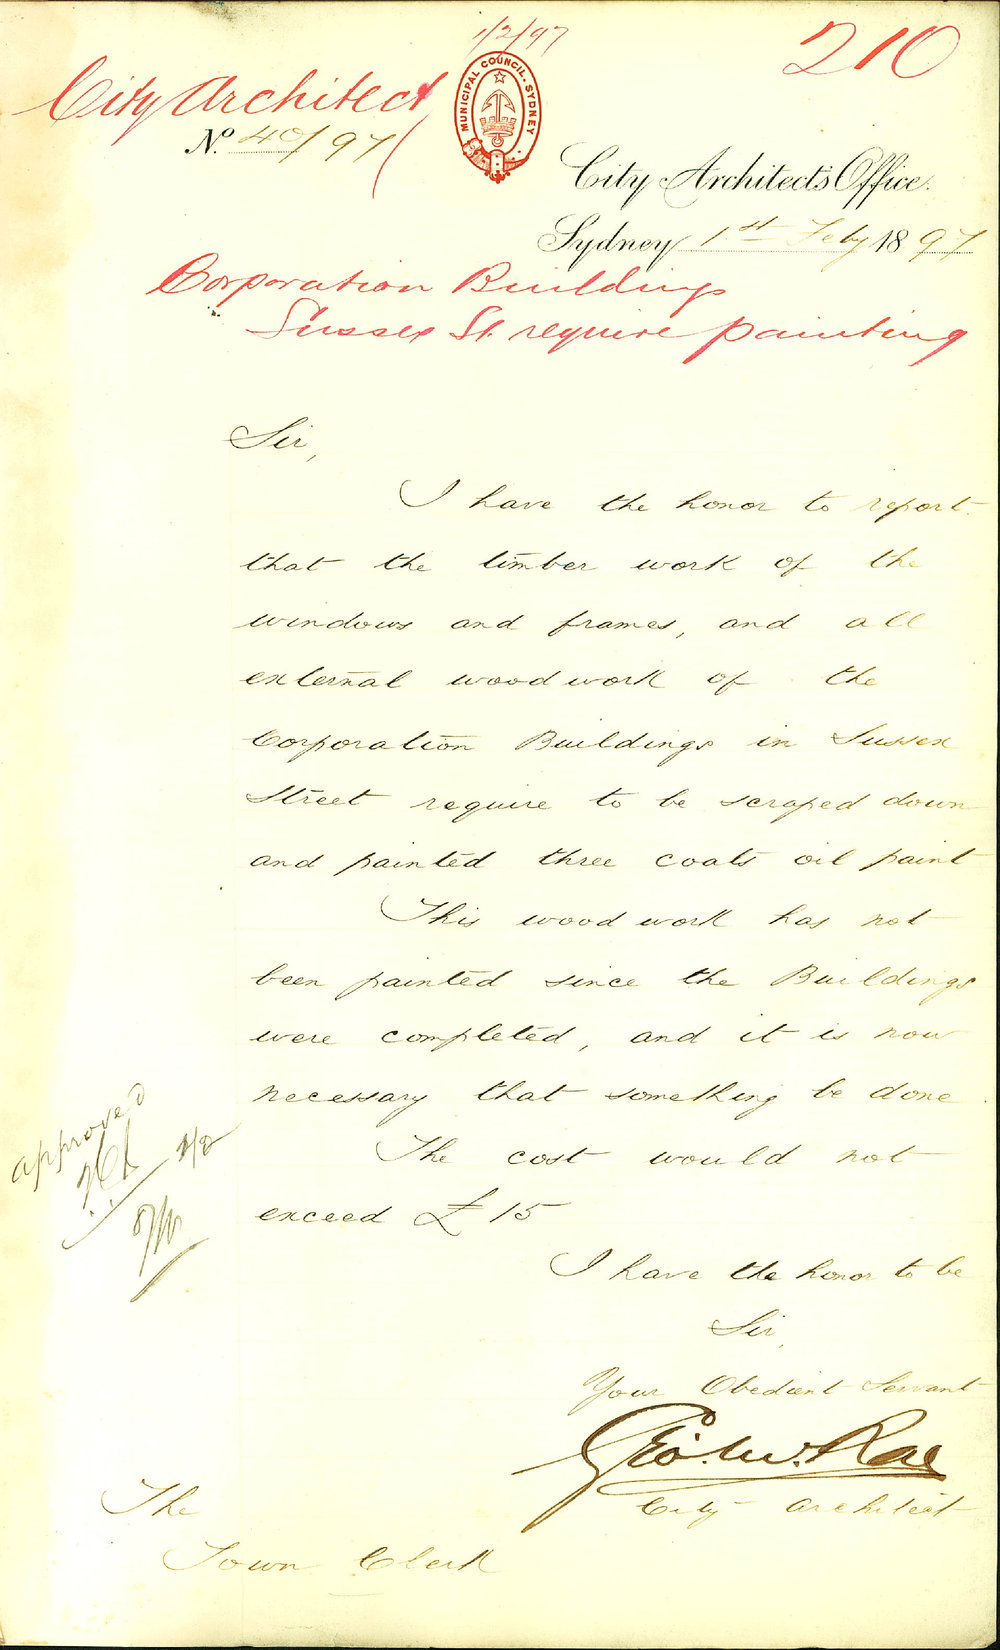 1/2/97
210
City Architect
MUNICIPAL COUNCIL. SYDNEY
No. 40/97
City Architect's Office.
Sydney 1st Feby 1897
Corporation Buildings
Sussex St. require painting
Sir,
I have the honor to report
that the timber work of the
windows and frames, and all
external woodwork of the
Corporation Buildings in Sussex
Street require to be scraped down
and painted three coats oil paint
This woodwork has not
been painted since the Buildings
were completed, and it is now
necessary that something be done
The cost would not
exceed £15
approved
I have the honor to be
Sir,
Your Obedient Servant
Geo. McRae
City Architect
The
Town Clerk